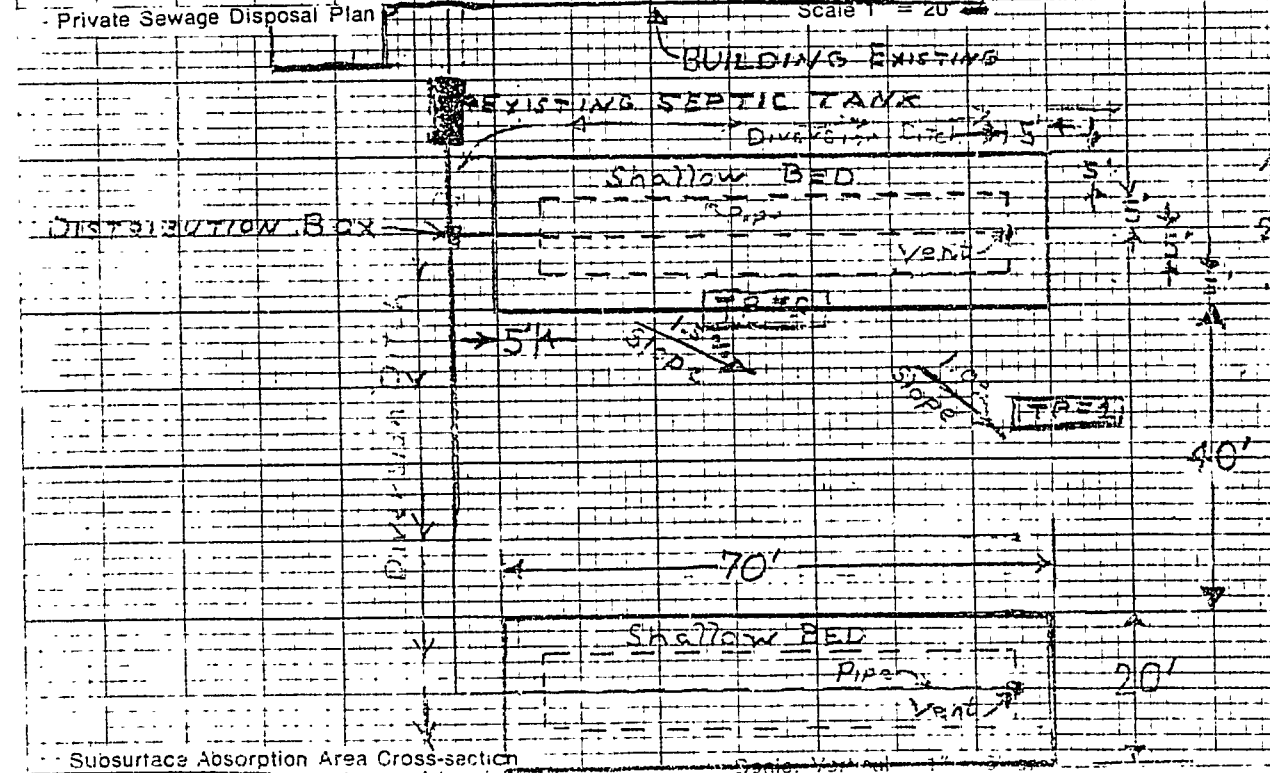 Private Sewage Disposal Plan
Scale 1" = 20'
BUILDING EXISTING
EXISTING SEPTIC TANK
Diversion Ditch
5'
Shallow BED
5'
Pipe
DISTRIBUTION BOX
Vent
5'
5'
5'
5'
Slope
Slope
40'
Diversion Ditch
70'
Shallow BED
Pipe
20'
Vent
Subsurface Absorption Area Cross-section